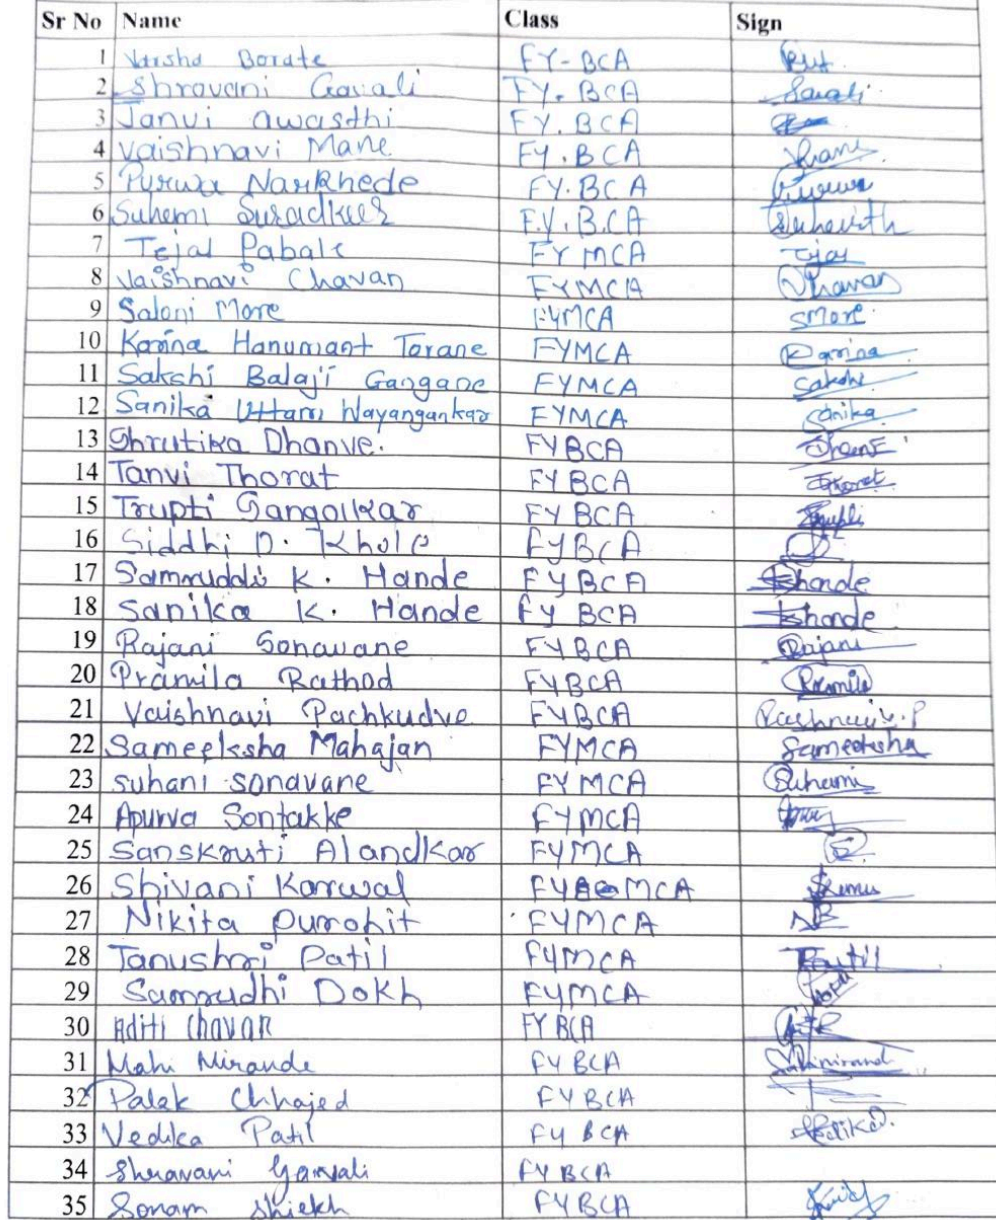 Sr No Name Class Sign
1 Varsha Borate FY-BCA
2 Shravani Gavali FY. BCA Gavali
3 Janvi awasthi FY. BCA
4 Vaishnavi Mane FY. BCA VMane
5 Purwa Narkhede FY. BCA Purwa
6 Suhemi F.Y. B.CA
7 Tejal Pabale FY MCA Tejal
8 Vaishnavi Chavan FYMCA VChavan
9 Saloni More FYMCA SMore
10 Karina Hanumant Torane FYMCA Karina
11 Sakshi Balaji Gangane FYMCA Sakshi
12 Sanika Uttam Wayangankar FYMCA Sanika
13 Shrutika Dhanve. FYBCA
14 Tanvi Thorat FYBCA Thorat
15 Trupti Gangolkar FYBCA Trupti
16 Siddhi D. Khule FYBCA
17 Samruddhi K. Hande FYBCA Skhande
18 Sanika K. Hande FYBCA Skhande
19 Rajani Sonawane FYBCA Rajani
20 Pramila Rathod FYBCA Pramila
21 Vaishnavi Pachkudve FYBCA Vaishnavi.P
22 Sameeksha Mahajan FYMCA Sameeksha
23 suhani sonavane FYMCA Suhani
24 Apurva Sontakke FYMCA
25 Sanskruti Alandkar FYMCA
26 Shivani Karwal FY MCA
27 Nikita Purohit FYMCA
28 Tanushri Patil FYMCA TPatil
29 Samrudhi Dokh FYMCA
30 Aditi Chavan FY BCA
31 Mahi Mirande FY BCA
32 Palak Chhajed FYBCA
33 Vedika Patil FY BCA Vedika
34 Shravani Gawali FYBCA
35 Sonam Shiekh FYBCA